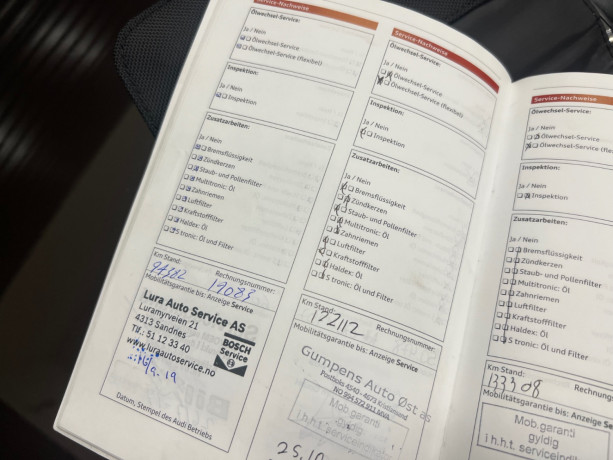 Service-Nachweise
Ölwechsel-Service:
Ja / Nein
Ölwechsel-Service
Ölwechsel-Service (flexibel)
Inspektion:
Ja / Nein
Inspektion
Zusatzarbeiten:
Ja / Nein
Bremsflüssigkeit
Zündkerzen
Staub- und Pollenfilter
Multitronic: Öl
Zahnriemen
Luftfilter
Kraftstofffilter
Haldex: Öl
S tronic: Öl und Filter
Km Stand:
Rechnungsnummer:
17083
Mobilitätsgarantie bis: Anzeige Service
Lura Auto Service AS
Luramyrveien 21
4313 Sandnes
Tlf.: 51 12 33 40
www.luraautoservice.no
BOSCH
Service
Datum, Stempel des Audi Betriebs
Service-Nachweise
Ölwechsel-Service:
Ja / Nein
Ölwechsel-Service
Ölwechsel-Service (flexibel)
Inspektion:
Ja / Nein
Inspektion
Zusatzarbeiten:
Ja / Nein
Bremsflüssigkeit
Zündkerzen
Staub- und Pollenfilter
Multitronic: Öl
Zahnriemen
Luftfilter
Kraftstofffilter
Haldex: Öl
S tronic: Öl und Filter
Km Stand:
Rechnungsnummer:
122112
Mobilitätsgarantie bis: Anzeige Service
Gumpens Auto Øst as
Postboks 4540 - 4673 Kristiansand
Mob.garanti
gyldig
i.h.h.t. serviceindi
25.10
Service-Nachweise
Ölwechsel-Service:
Ja / Nein
Ölwechsel-Service
Ölwechsel-Service (flex
Inspektion:
Ja / Nein
Inspektion
Zusatzarbeiten:
Ja / Nein
Bremsflüssigkeit
Zündkerzen
Staub- und Pollenfilter
Multitronic: Öl
Zahnriemen
Luftfilter
Kraftstofffilter
Haldex: Öl
S tronic: Öl und Filter
Km Stand:
133308
Mobilitätsgarantie bis: Anzeige
Mob.garanti
gyldig
i.h.h.t. serviceindik